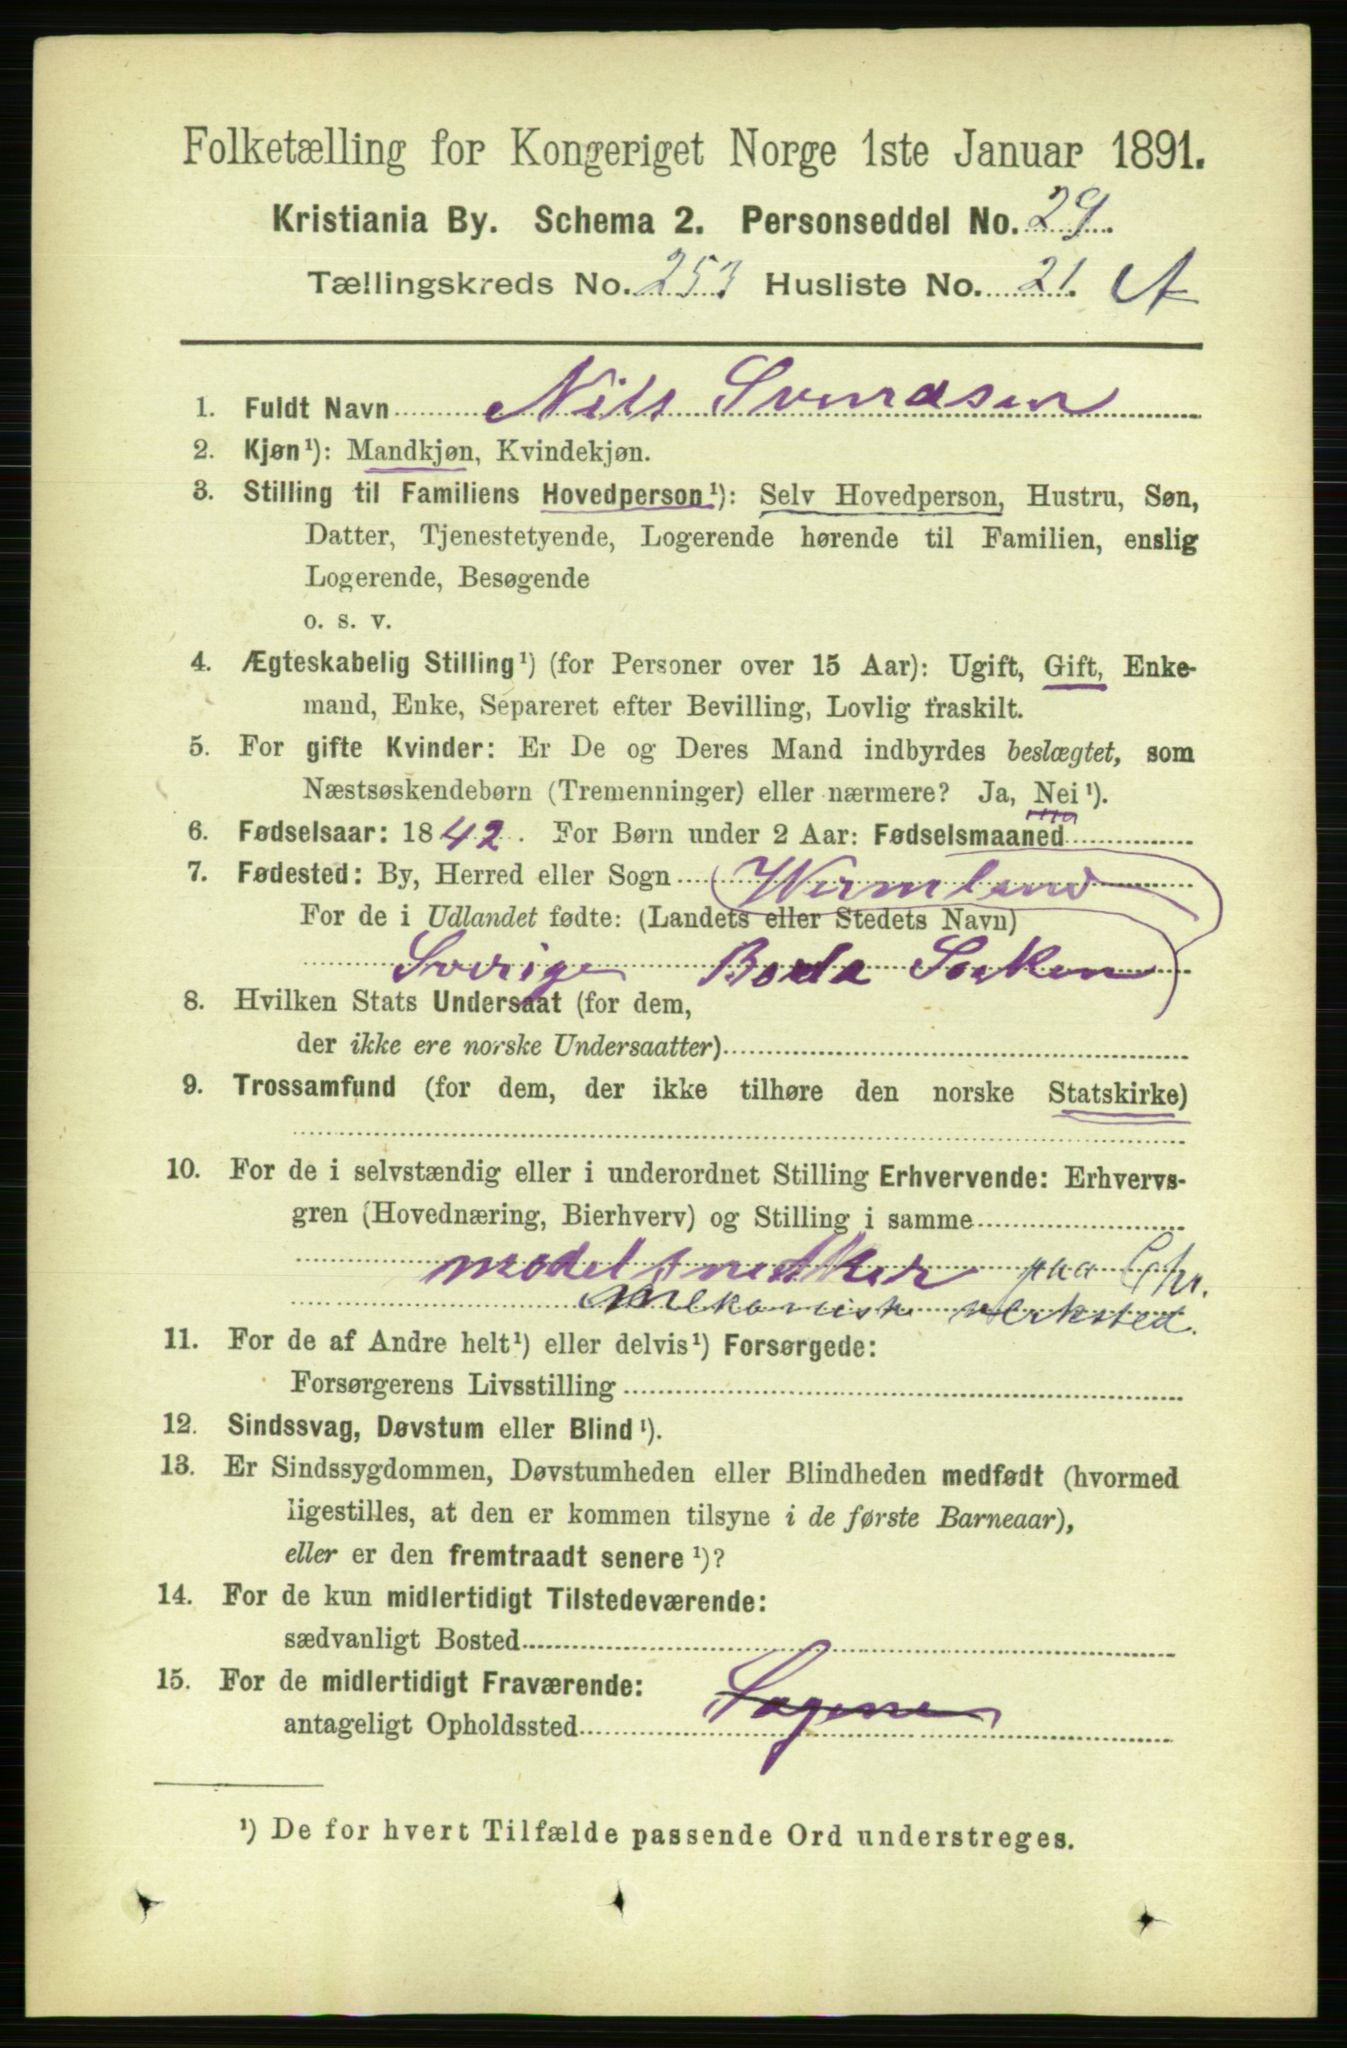 Folketælling for Kongeriget Norge 1ste Januar 1891.
Kristiania By. Schema 2. Personseddel No. 29.
Tællingskreds No. 253 Husliste No. 21. A
1. Fuldt Navn Nils Svendsen
2. Kjøn¹): Mandkjøn, Kvindekjøn.
3. Stilling til Familiens Hovedperson¹): Selv Hovedperson, Hustru, Søn,
Datter, Tjenestetyende, Logerende hørende til Familien, enslig
Logerende, Besøgende
o. s. v.
4. Ægteskabelig Stilling¹) (for Personer over 15 Aar): Ugift, Gift, Enke-
mand, Enke, Separeret efter Bevilling, Lovlig fraskilt.
5. For gifte Kvinder: Er De og Deres Mand indbyrdes beslægtet, som
Næstsøskendebørn (Tremenninger) eller nærmere? Ja, Nei¹).
6. Fødselsaar: 1842. For Børn under 2 Aar: Fødselsmaaned
7. Fødested: By, Herred eller Sogn Wermland
For de i Udlandet fødte: (Landets eller Stedets Navn)
Sverige Boda Socken
8. Hvilken Stats Undersaat (for dem,
der ikke ere norske Undersaatter)
9. Trossamfund (for dem, der ikke tilhøre den norske Statskirke)
10. For de i selvstændig eller i underordnet Stilling Erhvervende: Erhvervs-
gren (Hovednæring, Bierhverv) og Stilling i samme
modelsnedker paa Chr.
Mekanisk verksted.
11. For de af Andre helt¹) eller delvis¹) Forsørgede:
Forsørgerens Livsstilling
12. Sindssvag, Døvstum eller Blind¹).
13. Er Sindssygdommen, Døvstumheden eller Blindheden medfødt (hvormed
ligestilles, at den er kommen tilsyne i de første Barneaar),
eller er den fremtraadt senere¹)?
14. For de kun midlertidigt Tilstedeværende:
sædvanligt Bosted
15. For de midlertidigt Fraværende:
antageligt Opholdssted Sagene
¹) De for hvert Tilfælde passende Ord understreges.